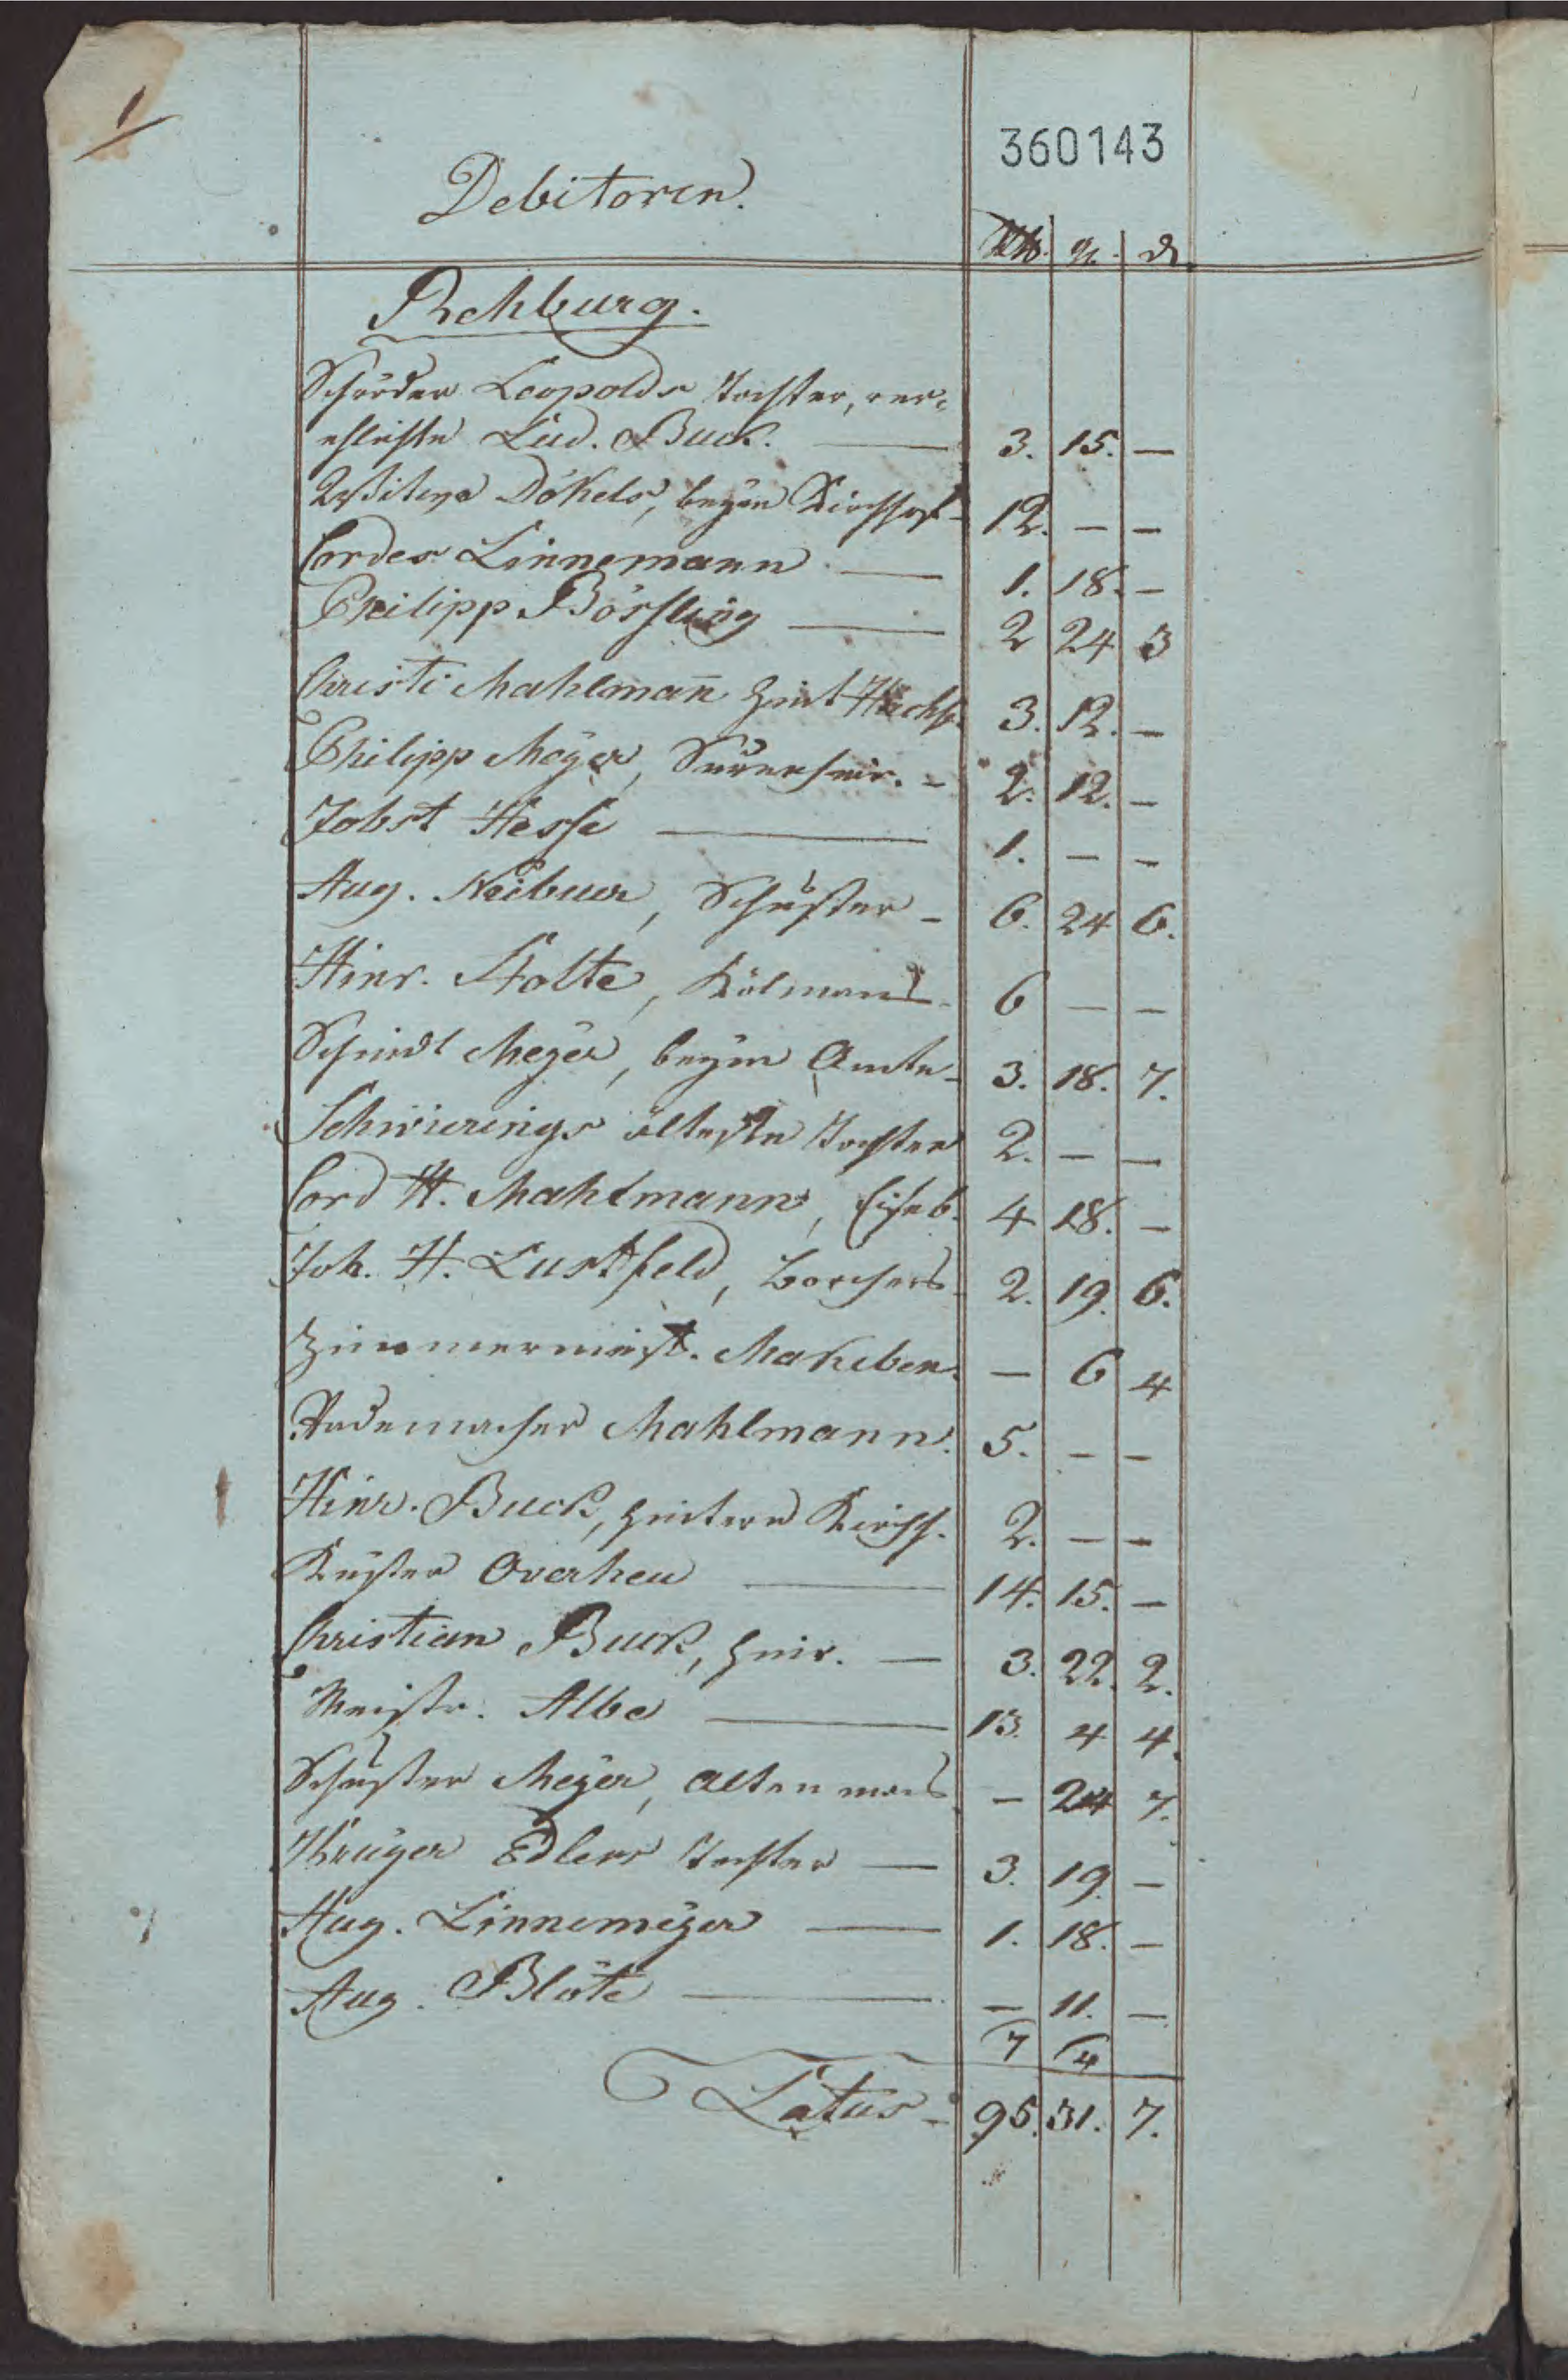 1
360143
Debitoren.
Rthlr. gr. d.
Rehburg.
Schröder Leopolds Tochter, ver=
ehlichte Lud. Buck. — 3. 15. —
Wittwe Dökels, beym Kirchhof - 12. — —
Cordes Linnemann — 1. 18. —
Philipp Börsling — 2 24 3
Christi Mahlman̄ 3. 12. —
Philipp Meÿer, - 2. 12. —
Jobst Hesse — 1. — —
Aug. Neibuer, Schuster - 6. 24 6.
Hinr. Stolte, - 6 — —
Schmidt Meÿer, beym Amte - 3. 18. 7.
Schwierings älteste Tochter 2. — —
Cord H. Mahlmann, 4 18. —
Joh. H. Lustfeld, Borchers - 2. 19. 6.
Zimmermeist. Makeben. — 6 4
Rademacher Mahlmann. 5. — —
Hinr. Buck, hintern Kirchh. 2. — —
Küster Overheu — 14. 15. —
Christian Buck, — 3. 22. 2.
Meistr. Albe — 13. 4 4.
Schuster Meÿer, - 24 7.
Krüger Edlers Tochter — 3. 19. —
Aug. Linnemeÿer — 1. 18. —
Aug. Blöte — — 11. —
7 4
Latus - 95. 31. 7.